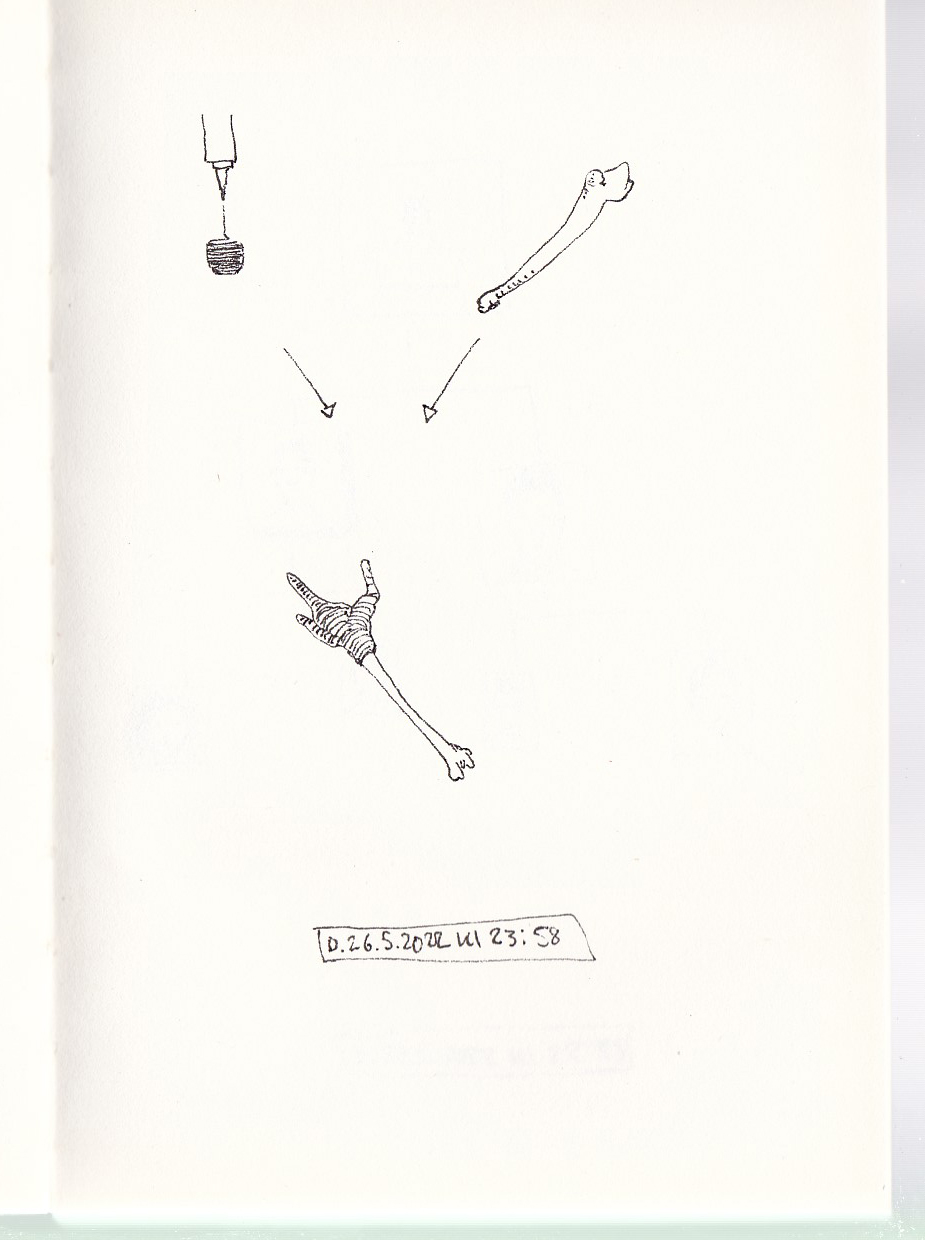 D.26.5.2022 kl 23:58